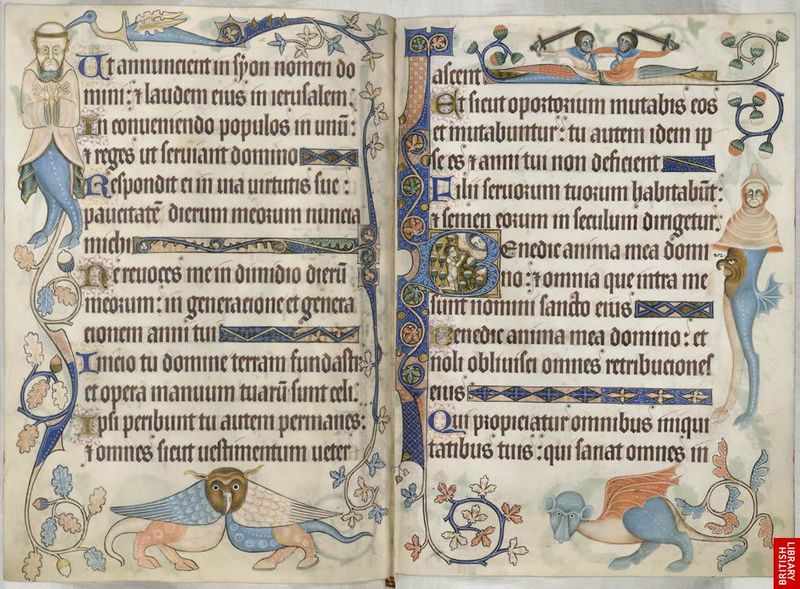 Ut annuncient in syon nomen do
mini: & laudem eius in ierusalem.
In conueniendo populos in unū:
& reges ut seruiant domino
Respondit ei in uia uirtutis sue:
paucitatē dierum meorum nuncia
michi
Ne reuoces me in dimidio dierū
meorum: in generacione et genera
cionem anni tui
Inicio tu domine terram fundasti:
et opera manuum tuarū sunt celi.
Ipsi peribunt tu autem permanes:
& omnes sicut uestimentum ueter
ascent
Et sicut opertorium mutabis eos
et mutabuntur: tu autem idem ip
se es & anni tui non deficient
Filii seruorum tuorum habitabūt:
& semen eorum in seculum dirigetur.
Benedic anima mea domi
no: & omnia que intra me
sunt nomini sancto eius
Benedic anima mea domino: et
noli obliuisci omnes retribuciones
eius
Qui propiciatur omnibus iniqui
tatibus tuis: qui sanat omnes in
BRITISH
LIBRARY